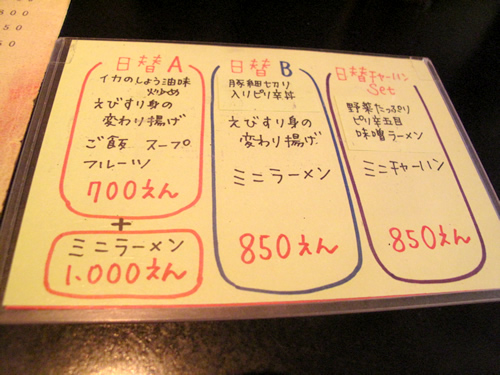 日替A
イカのしょう油味
炒め
えびすり身の
変わり揚げ
ご飯 スープ
フルーツ
700えん
+
ミニラーメン
1.000えん
日替B
豚細切り
入りピリ辛丼
えびすり身の
変わり揚げ
ミニラーメン
850えん
日替チャーハン
Set
野菜たっぷり
ピリ辛五目
味噌ラーメン
ミニチャーハン
850えん